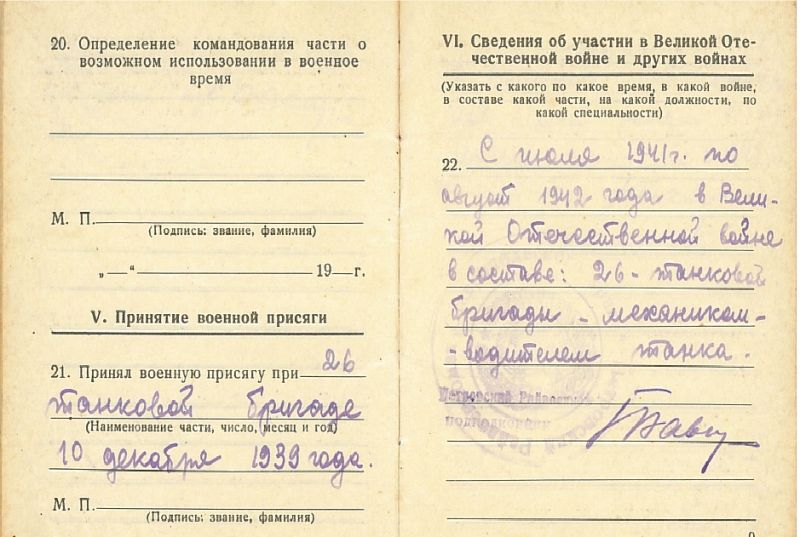 20. Определение командования части о
возможном использовании в военное
время
М. П.
(Подпись: звание, фамилия)
„—“ 19—г.
V. Принятие военной присяги
21. Принял военную присягу при 26
танковой бригаде
(Наименование части, число, месяц и год)
10 декабря 1939 года.
М. П.
(Подпись: звание, фамилия)
VI. Сведения об участии в Великой Оте-
чественной войне и других войнах
(Указать с какого по какое время, в какой войне,
в составе какой части, на какой должности, по
какой специальности)
22. С июля 1941 г. по
август 1942 года в Вели-
кой Отечественной войне
в составе: 26-танковой
бригады - механиком-
-водителем танка.
Петровский
подполковник